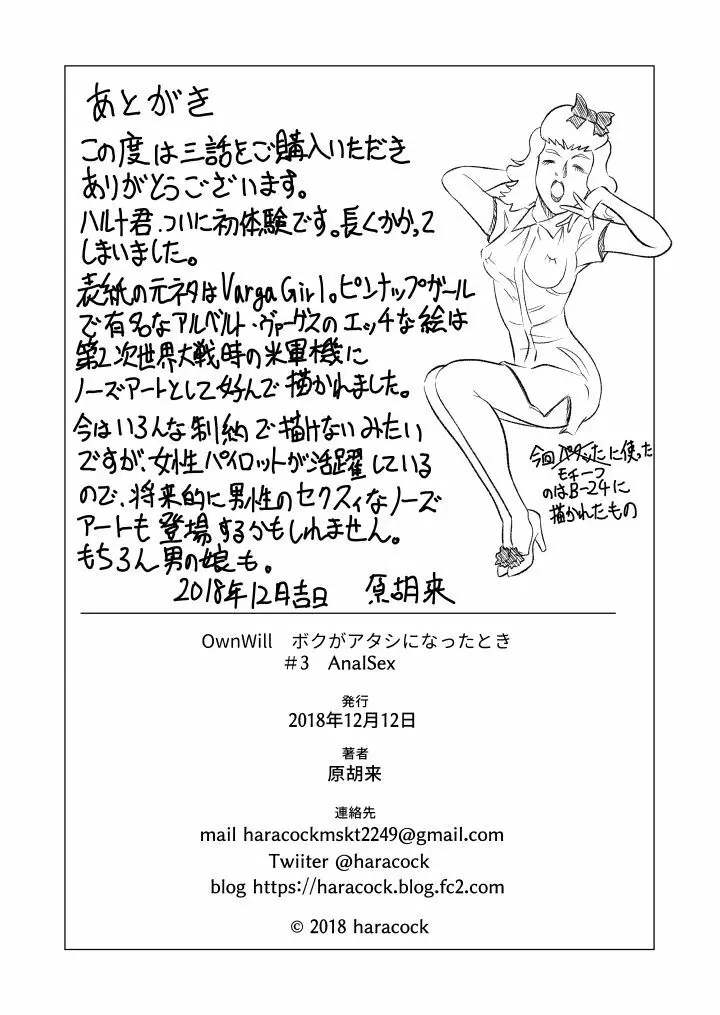 あとがき
この度は三話をご購入いただき
ありがとうございます。
ハルナ君、ついに初体験です。長くかかって
しまいました。
表紙の元ネタはVarga Girl。ピンナップガール
で有名なアルベルト・ヴァーゲスのエッチな絵は
第2次世界大戦時の米軍機に
ノーズアートとして好んで描かれました。
今はいろんな制約で描けないみたい
ですが、女性パイロットが活躍している
ので、将来的に男性のセクスィなノーズ
アートも登場するかもしれません。
もちろん男の娘も。
2018年12月吉日 原胡来
今回 に使った
モチーフ
のはB-24に
描かれたもの
OwnWill ボクがアタシになったとき
#3 AnalSex
発行
2018年12月12日
著者
原胡来
連絡先
mail haracockmskt2249@gmail.com
Twiiter @haracock
blog https://haracock.blog.fc2.com
© 2018 haracock